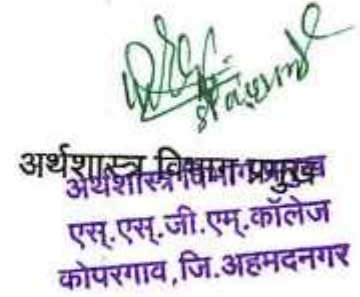 अर्थशास्त्र विभाग प्रमुख
अर्थशास्त्र विभाग प्रमुख
एस्.एस्.जी.एम्.कॉलेज
कोपरगाव,जि.अहमदनगर